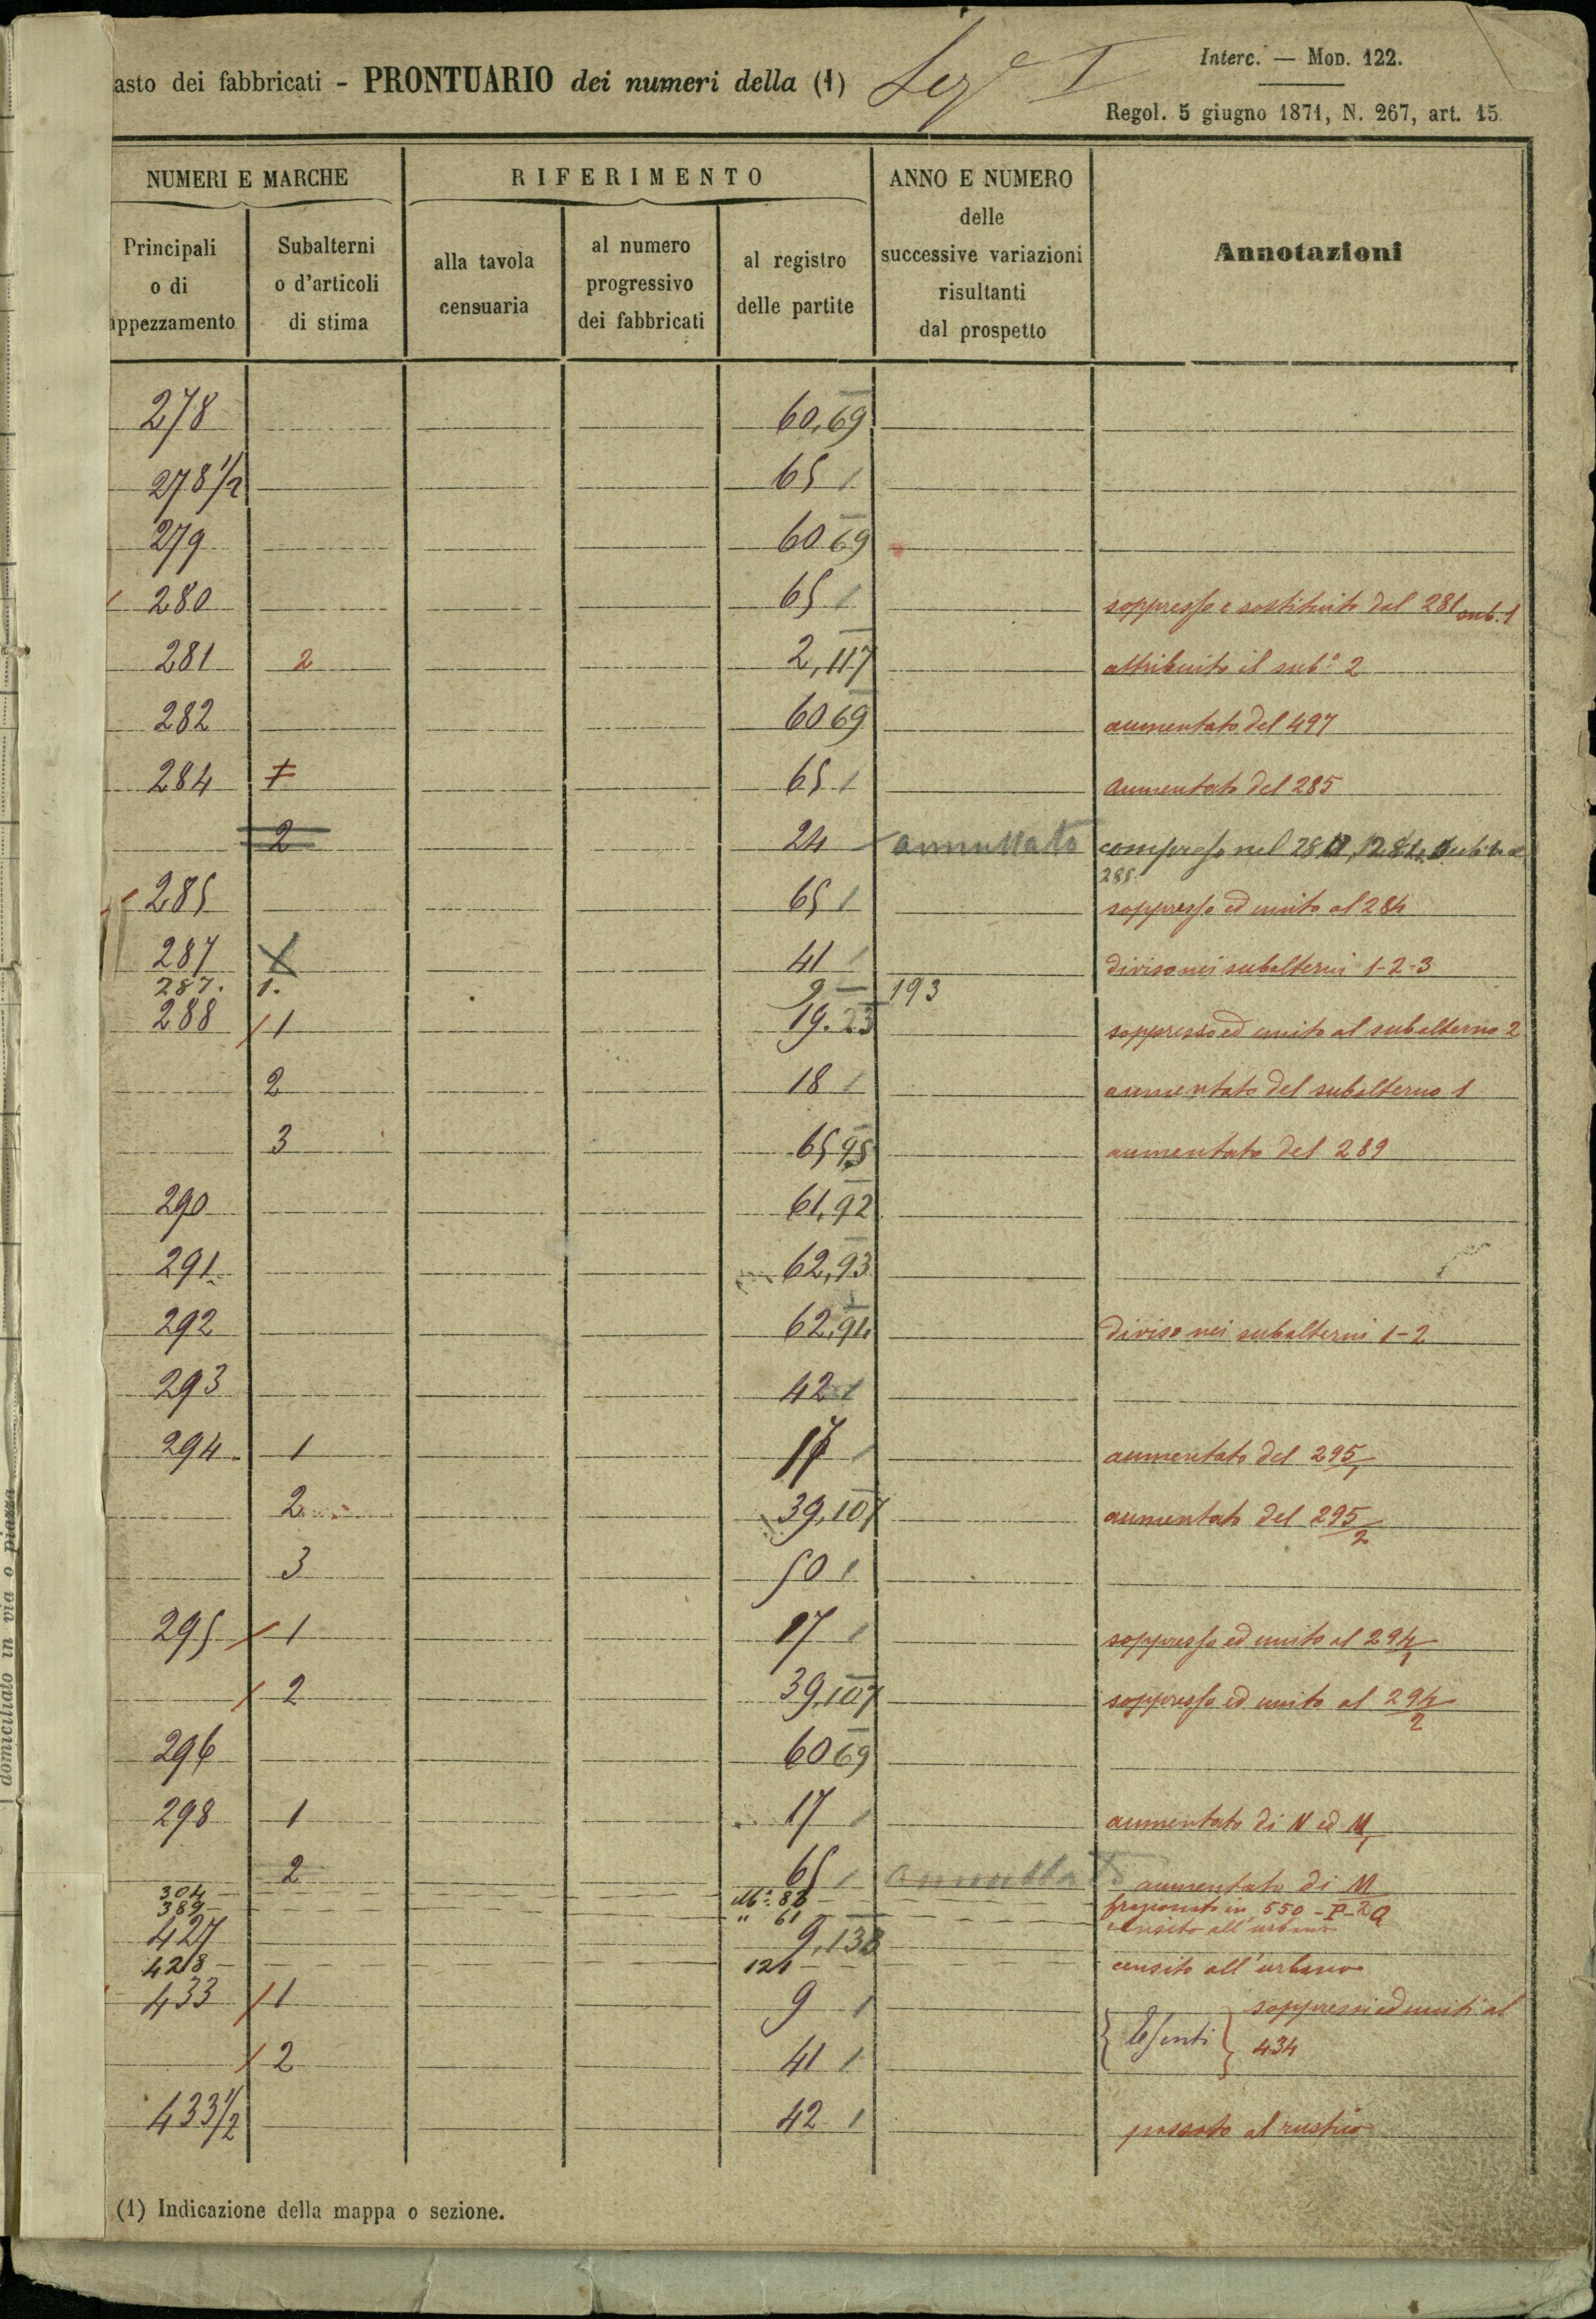 asto dei fabbricati - PRONTUARIO dei numeri della (1) Sez.e I
Interc. — Mod. 122.
Regol. 5 giugno 1871, N. 267, art. 15.
NUMERI E MARCHE
RIFERIMENTO
ANNO E NUMERO
delle
successive variazioni
risultanti
dal prospetto
Annotazioni
Principali
o di
appezzamento
Subalterni
o d'articoli
di stima
alla tavola
censuaria
al numero
progressivo
dei fabbricati
al registro
delle partite
278 60,69
278 1/2 65 /
279 60 69
/ 280 65 / soppresso e sostituito dal 281 sub. 1
281 2 2,117 attribuito il sub.o 2
282 60 69 aumentato del 497
284 65 / aumentato del 285
2 24 annullato compreso nel
285
/ 285 65 / soppresso ed unito al 284
287 41 / diviso nei subalterni 1-2-3
287. 1. 9 — 193
288 / 1 19.23 soppresso ed unito al subalterno 2
2 18 / aumentato del subalterno 1
3 65 95 aumentato del 289
290 61,92
291 62,93
292 62,94 diviso nei subalterni 1-2
293 42 /
294 1 17 / aumentato del 295/1
2 39,107 aumentato del 295/2
3 50 /
295 / 1 17 / soppresso ed unito al 294/1
/ 2 39,107 soppresso ed unito al 294/2
296 60 69
298 1 17 / aumentato di N ed M
2 65 / annullato aumentato di M
304 — 86 — frazionato in 550 - P - 2Q
389 — " 61 — censito all'urbano
427 9,138
428 — 121 — censito all'urbano
433 / 1 9 / { Esenti } soppressi ed uniti al
/ 2 41 / 434
433 1/2 42 / passato al rustico
(1) Indicazione della mappa o sezione.
domiciliato in via o piazza